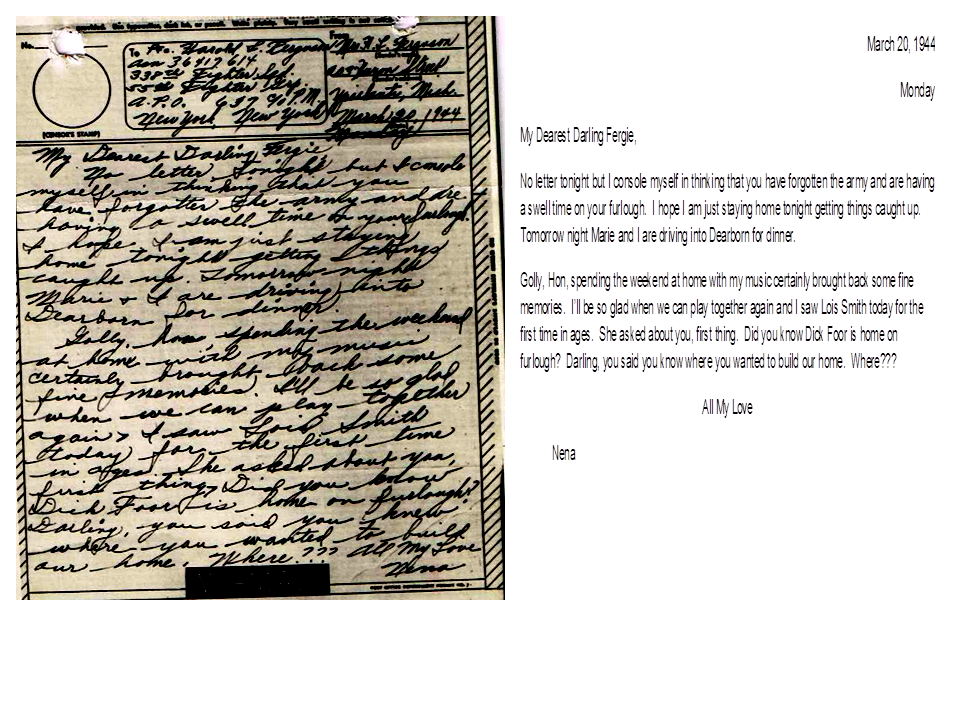 No.
(CENSOR'S STAMP)
To Pvt. Harold L. Ferguson
asn 36417614
338th Fighter Sqd.
55th Fighter Gp.
A.P.O. 637 % P.M.
New York, New York
From
Mrs. H. L. Ferguson
March 20, 1944
Monday
My Dearest Darling Fergie,
No letter tonight but I console
myself in thinking that you
have forgotten the army and are
having a swell time on your furlough.
I hope. I am just staying
home tonight getting things
caught up. Tomorrow night
Marie & I are driving into
Dearborn for dinner.
Golly, hon, spending the weekend
at home with my music
certainly brought back some
fine memories. I'll be so glad
when we can play together
again & I saw Lois Smith
today for the first time
in ages. She asked about you,
first thing, Did you know
Dick Foor is home on furlough?
Darling, you said you knew
where you wanted to build
our home. Where??? All My Love
Nena
March 20, 1944
Monday
My Dearest Darling Fergie,
No letter tonight but I console myself in thinking that you have forgotten the army and are having
a swell time on your furlough. I hope I am just staying home tonight getting things caught up.
Tomorrow night Marie and I are driving into Dearborn for dinner.
Golly, Hon, spending the weekend at home with my music certainly brought back some fine
memories. I'll be so glad when we can play together again and I saw Lois Smith today for the
first time in ages. She asked about you, first thing. Did you know Dick Foor is home on
furlough? Darling, you said you know where you wanted to build our home. Where???
All My Love
Nena